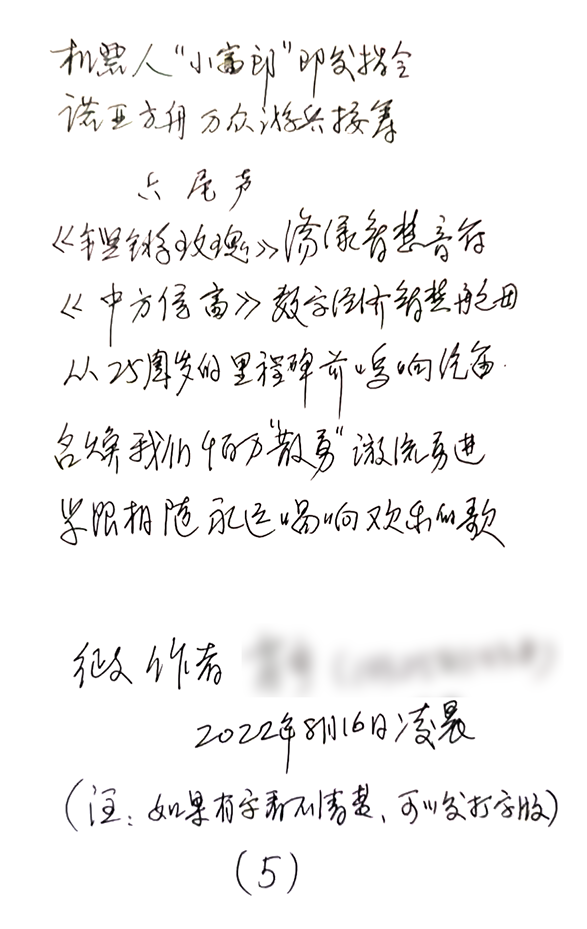 机器人“小富郎”即发指令
诺亚方舟 万众游兵接筹
六 尾声
《铿锵玫瑰》谱慧音符
《中方信富》数字经济智慧航母
从25周岁的里程碑前鸣响汽笛.
召焕我们百万“散勇”激流勇进
紧跟相随 永远唱响欢乐的歌
征文 作者
2022年8月16日凌晨
(注: 如果有字看不清楚、可以发打字版)
(5)